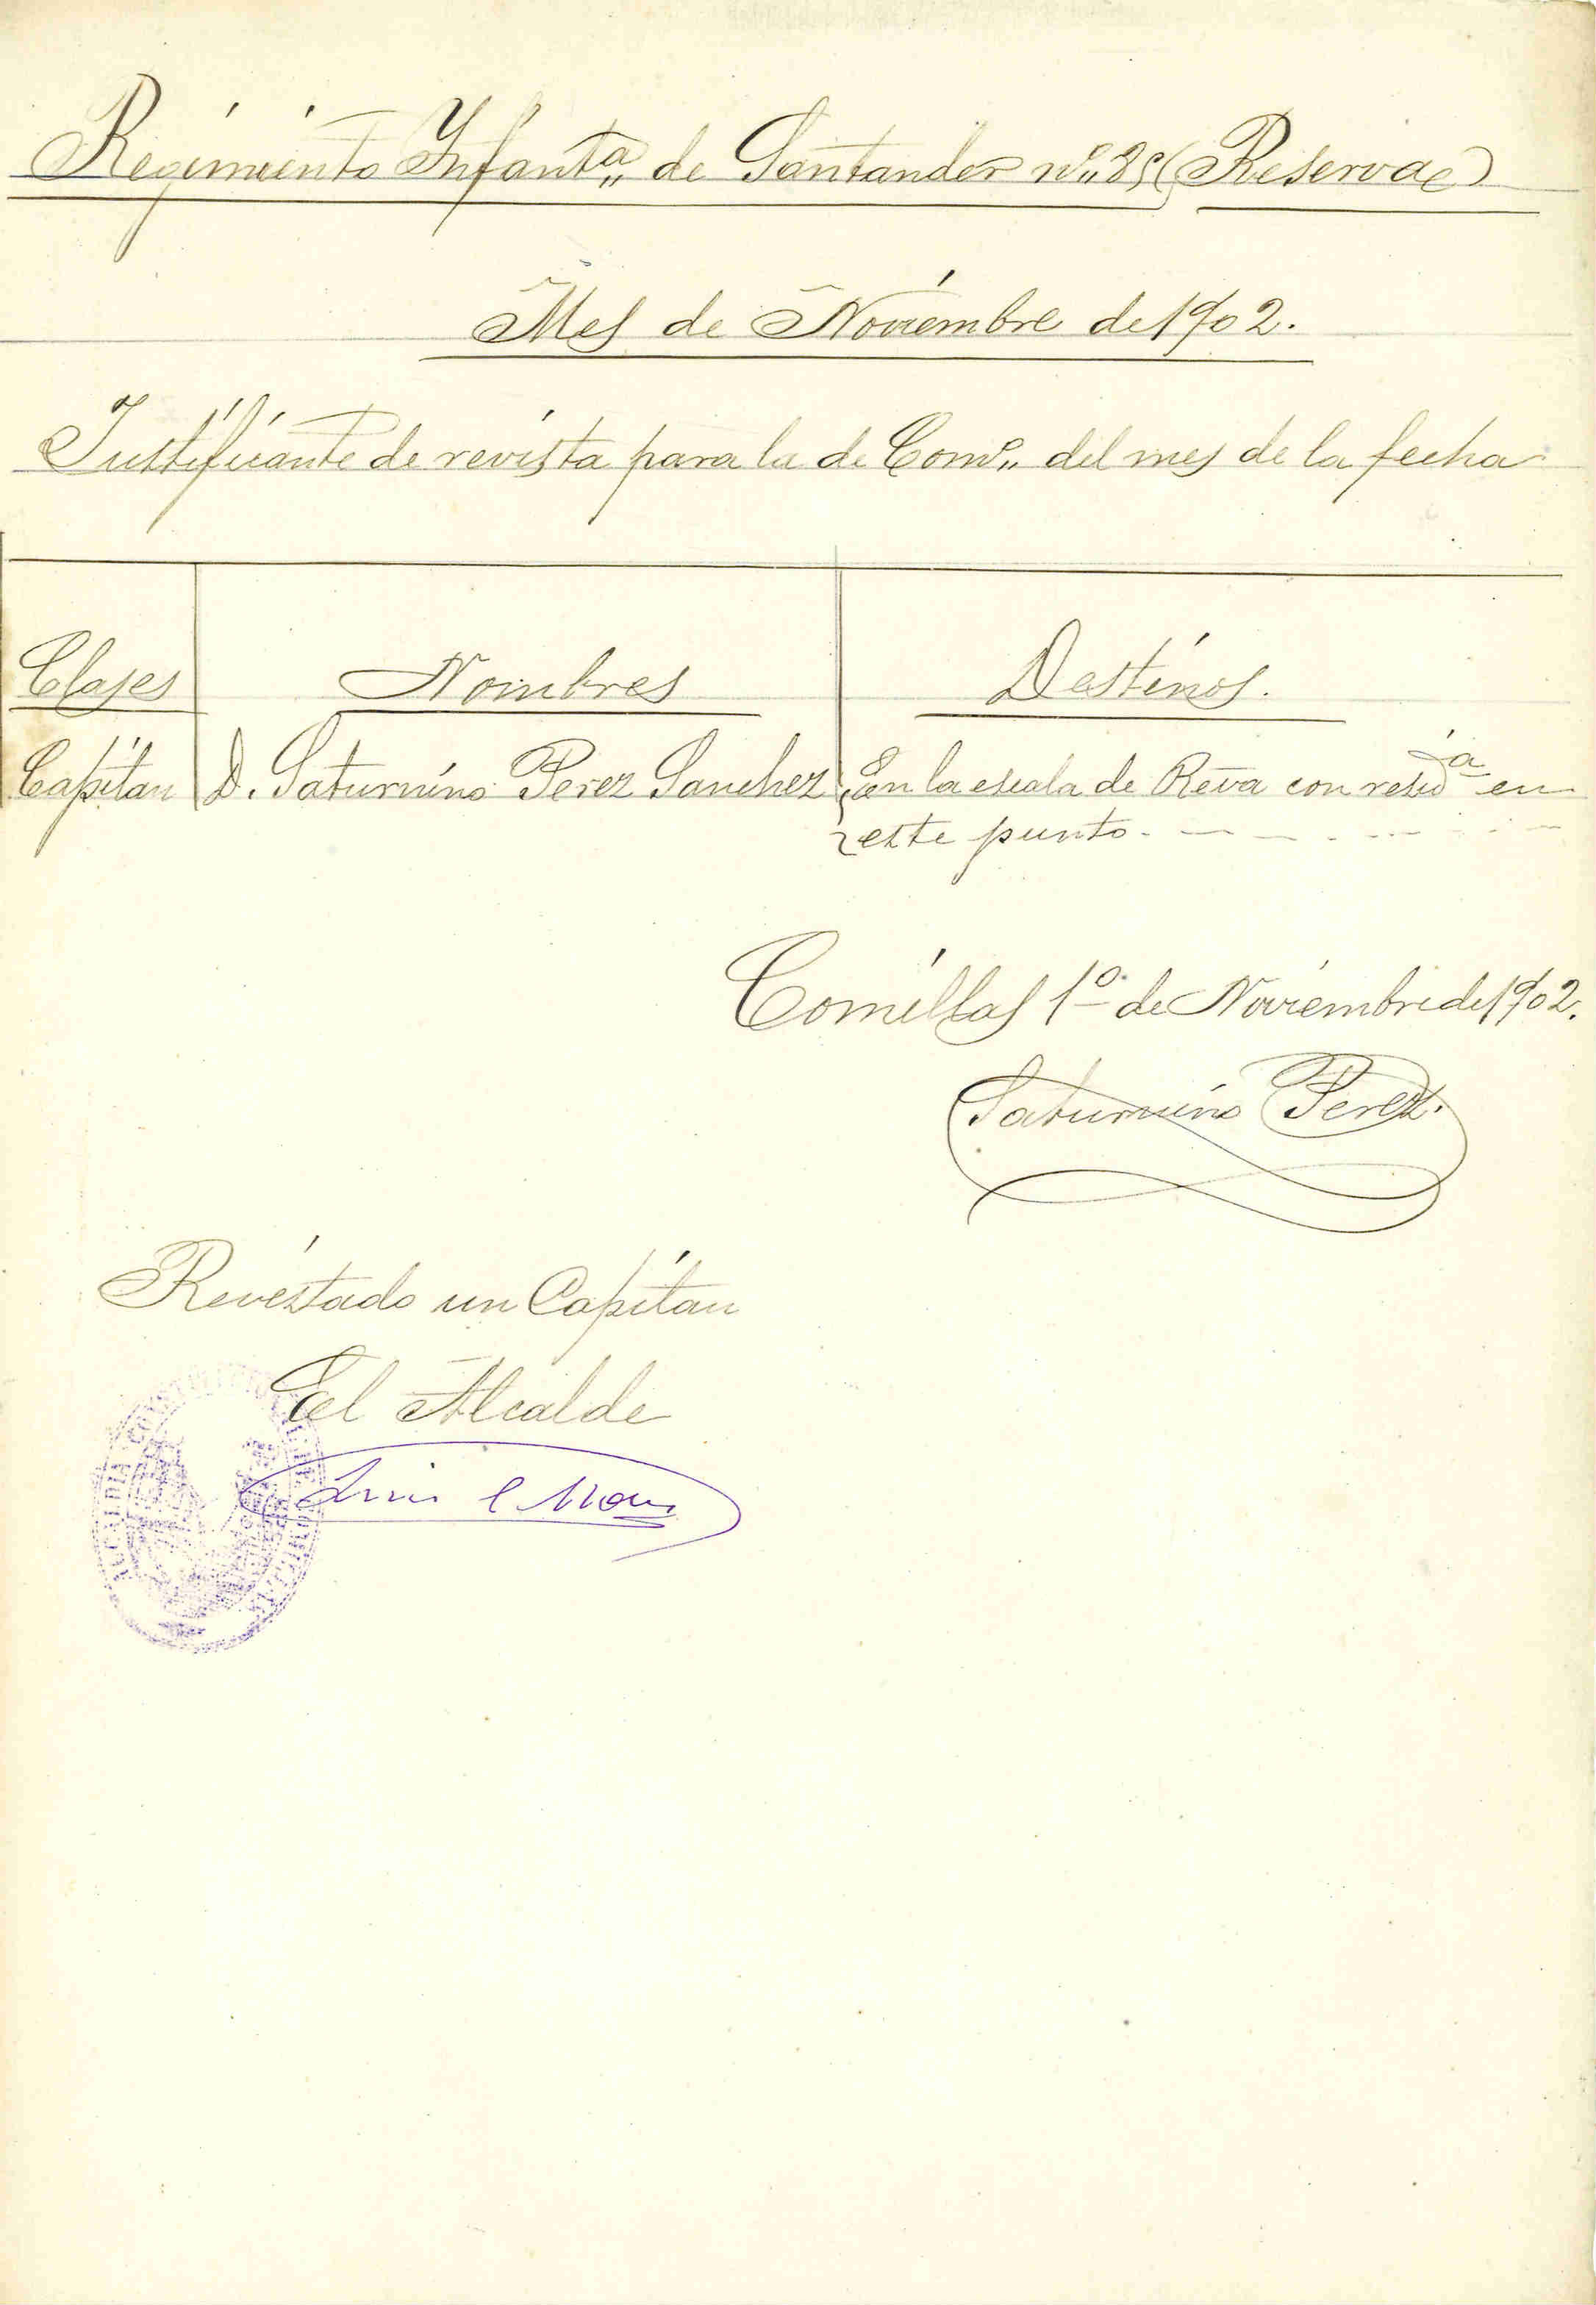 Regimiento Infantª de Santander nº 85 (Reserva)
Mes de Noviembre de 1902.
Justificante de revista para la de Comº del mes de la fecha
Clases Nombres Destinos.
Capitan D. Saturnino Perez Sanchez En la escala de Reva con residª en
este punto.
Comillas 1º de Noviembre de 1902.
Saturnino Perez.
Revistado un Capitan
El Alcalde
ALCALDIA